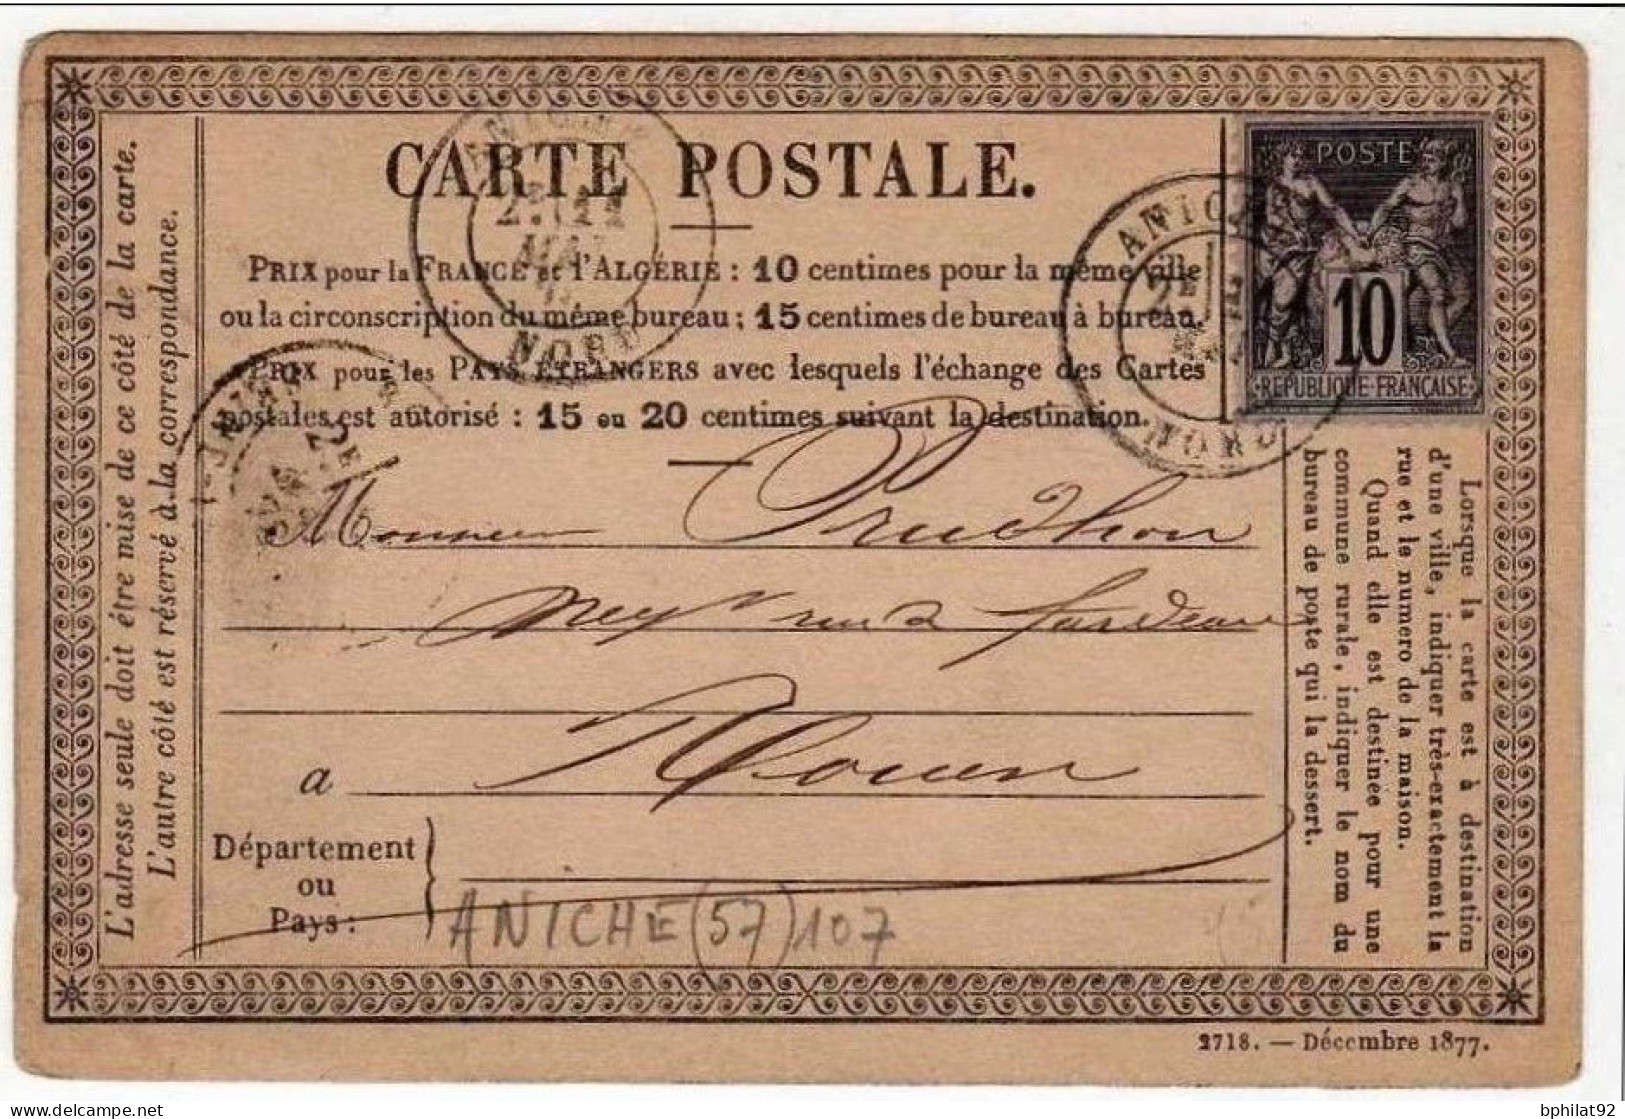 CARTE POSTALE.
PRIX pour la FRANCE et l'ALGERIE : 10 centimes pour la même ville
ou la circonscription du même bureau ; 15 centimes de bureau à bureau.
PRIX pour les PAYS ETRANGERS avec lesquels l'échange des Cartes
postales est autorisé : 15 ou 20 centimes suivant la destination.
POSTE
10
REPUBLIQUE-FRANÇAISE
NORD
ANICHE
NORD
2E
L'adresse seule doit être mise de ce côté de la carte.
L'autre côté est réservé à la correspondance.
Monsieur Prudhon
rue
à Rouen
Département
ou
Pays :
ANICHE (57) 107
Lorsque la carte est à destination
d'une ville, indiquer très-exactement la
rue et le numero de la maison.
Quand elle est destinée pour une
commune rurale, indiquer le nom du
bureau de poste qui la dessert.
2718. — Décembre 1877.
bphilat92